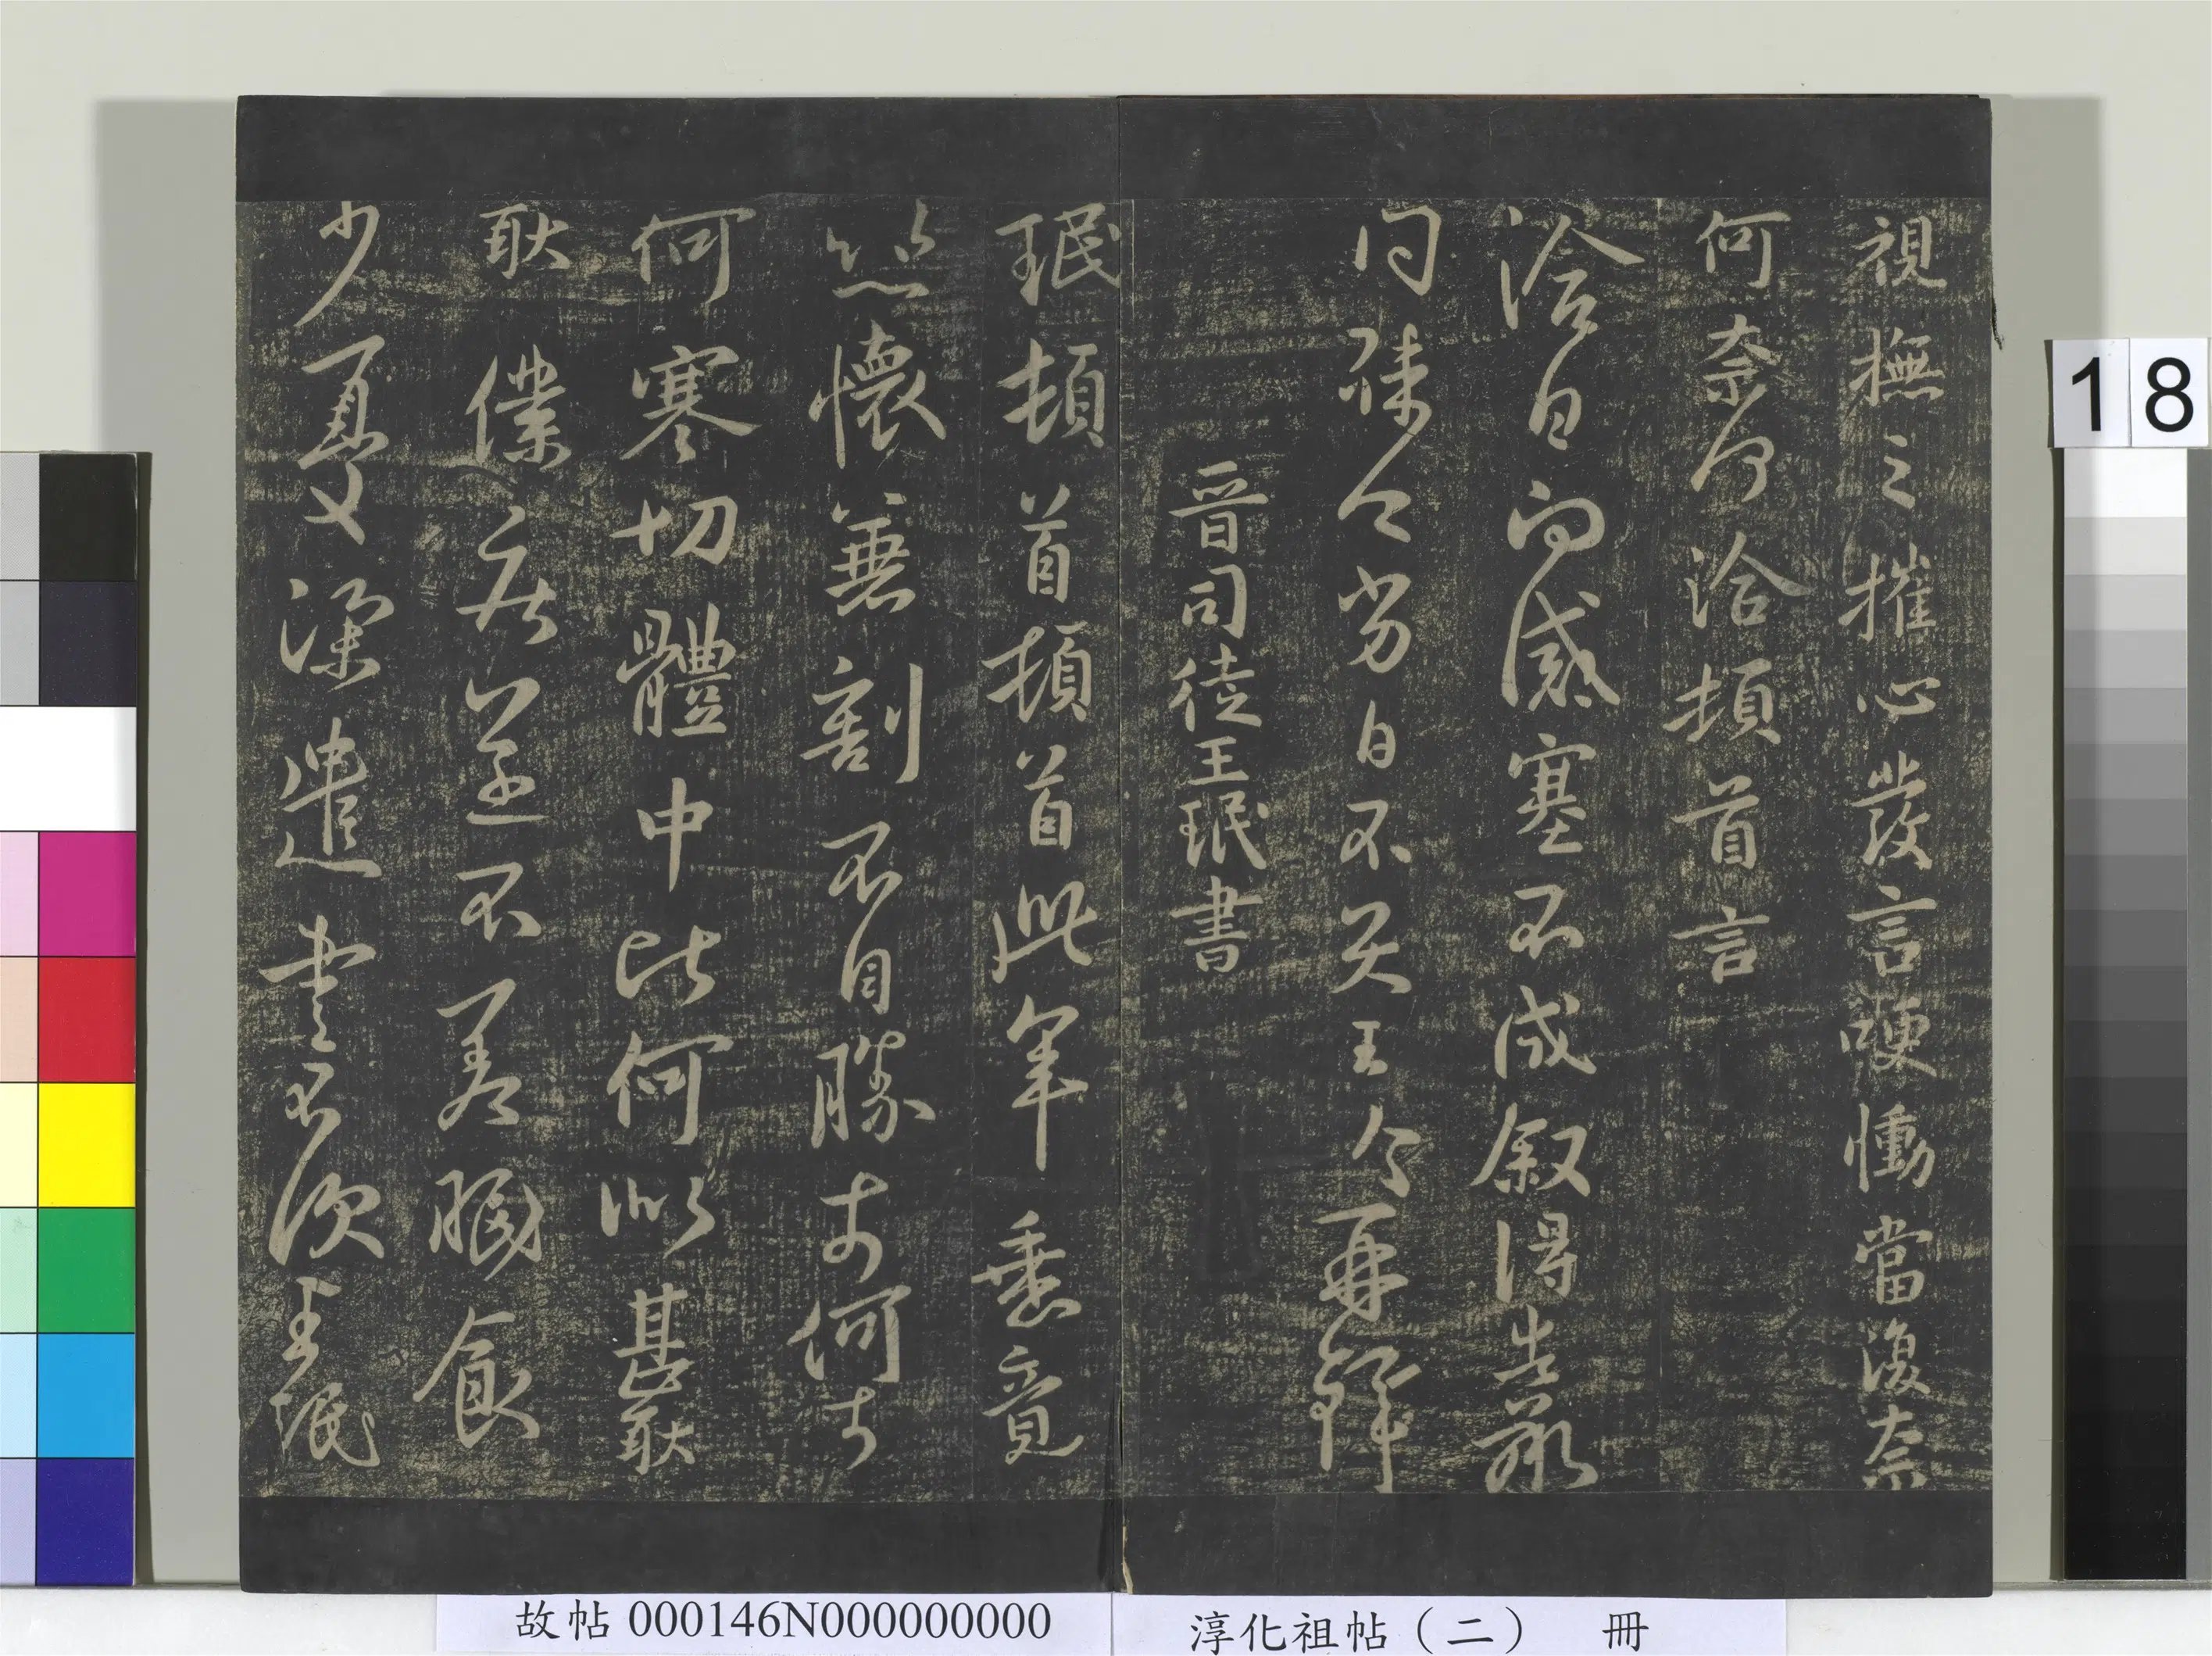 視撫之摧心發言哽慟當復奈
何奈何洽頓首言
洽白向感塞不成叙得告承
問殊乏劣白不具王洽再拜
晉司徒王珉書
珉頓首頓首此年垂竟
悲懷兼割不自勝奈何奈
何寒切體中比何似甚耿
耿僕疾遂不差眠食
少憂深遣書不次王珉
18
故帖000146N000000000
淳化祖帖（二） 冊